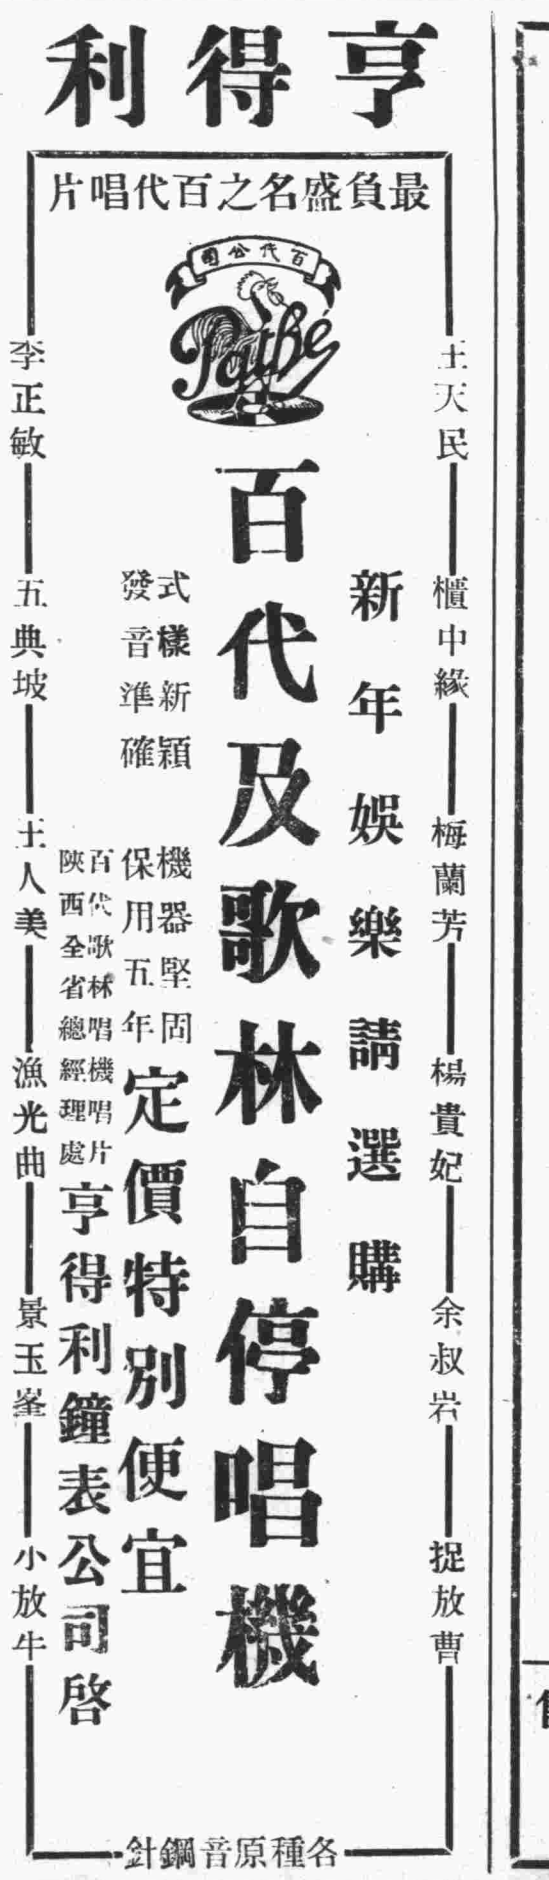 亨得利
最負盛名之百代唱片
百代公司
Pathé
王天民
櫃中緣
梅蘭芳
楊貴妃
余叔岩
捉放曹
新年娛樂請選購
百代及歌林自停唱機
式樣新穎
發音準確
機器堅固
保用五年
定價特別便宜
百代歌林唱機唱片
陝西全省總經理處
亨得利鐘表公司啓
李正敏
五典坡
王人美
漁光曲
景玉峯
小放牛
各種原音鋼針